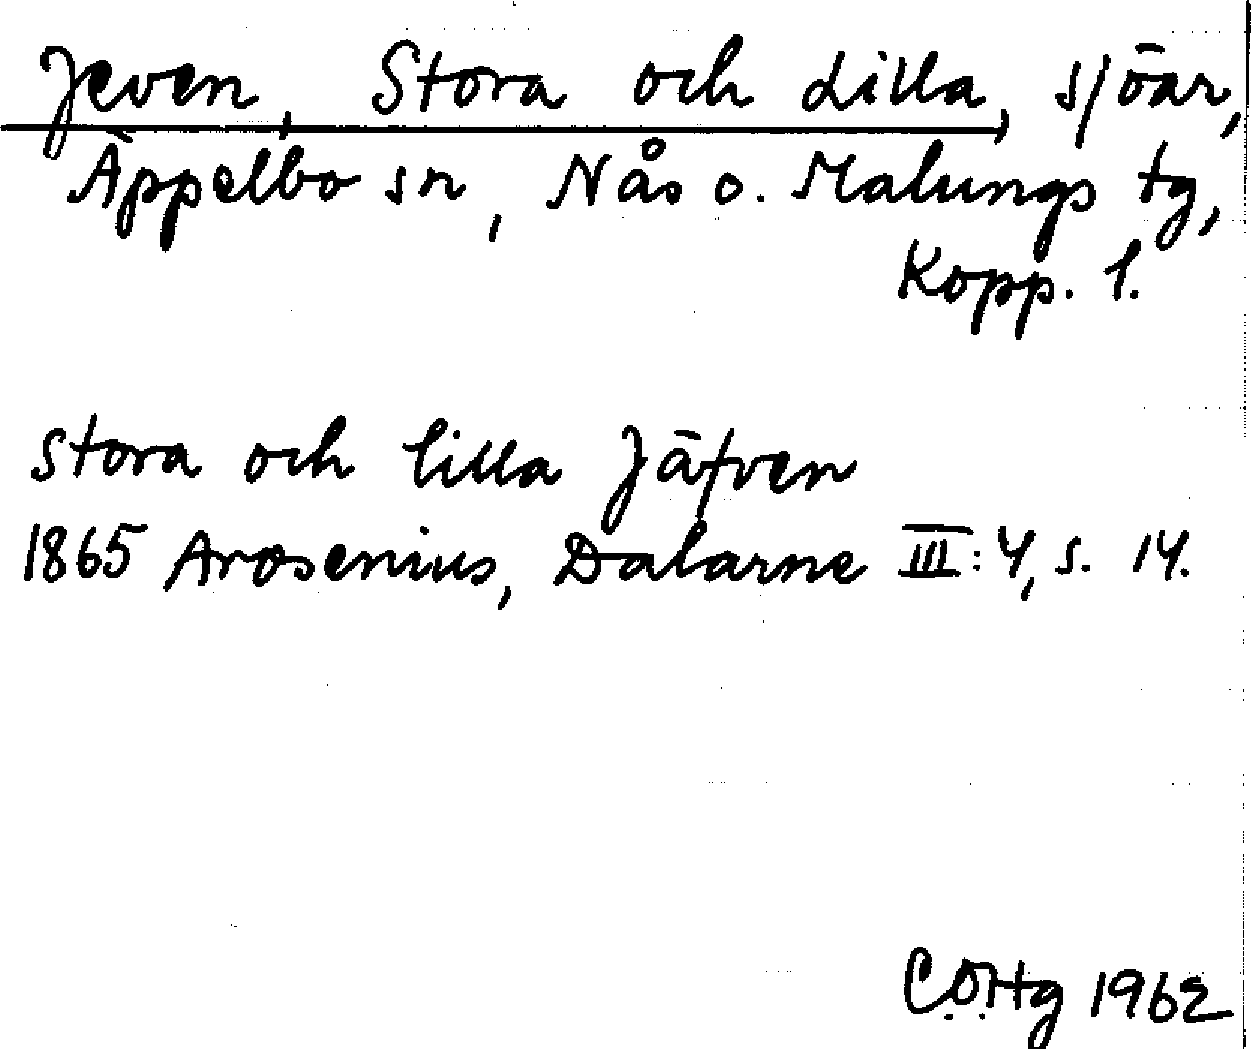 Jeven, Stora och Lilla, sjöar,
Äppelbo sn, Nås o. Malungs tg,
Kopp. l.
Stora och lilla Jäfven
1865 Arosenius, Dalarne III:4, s. 14.
C.O.Htg 1962